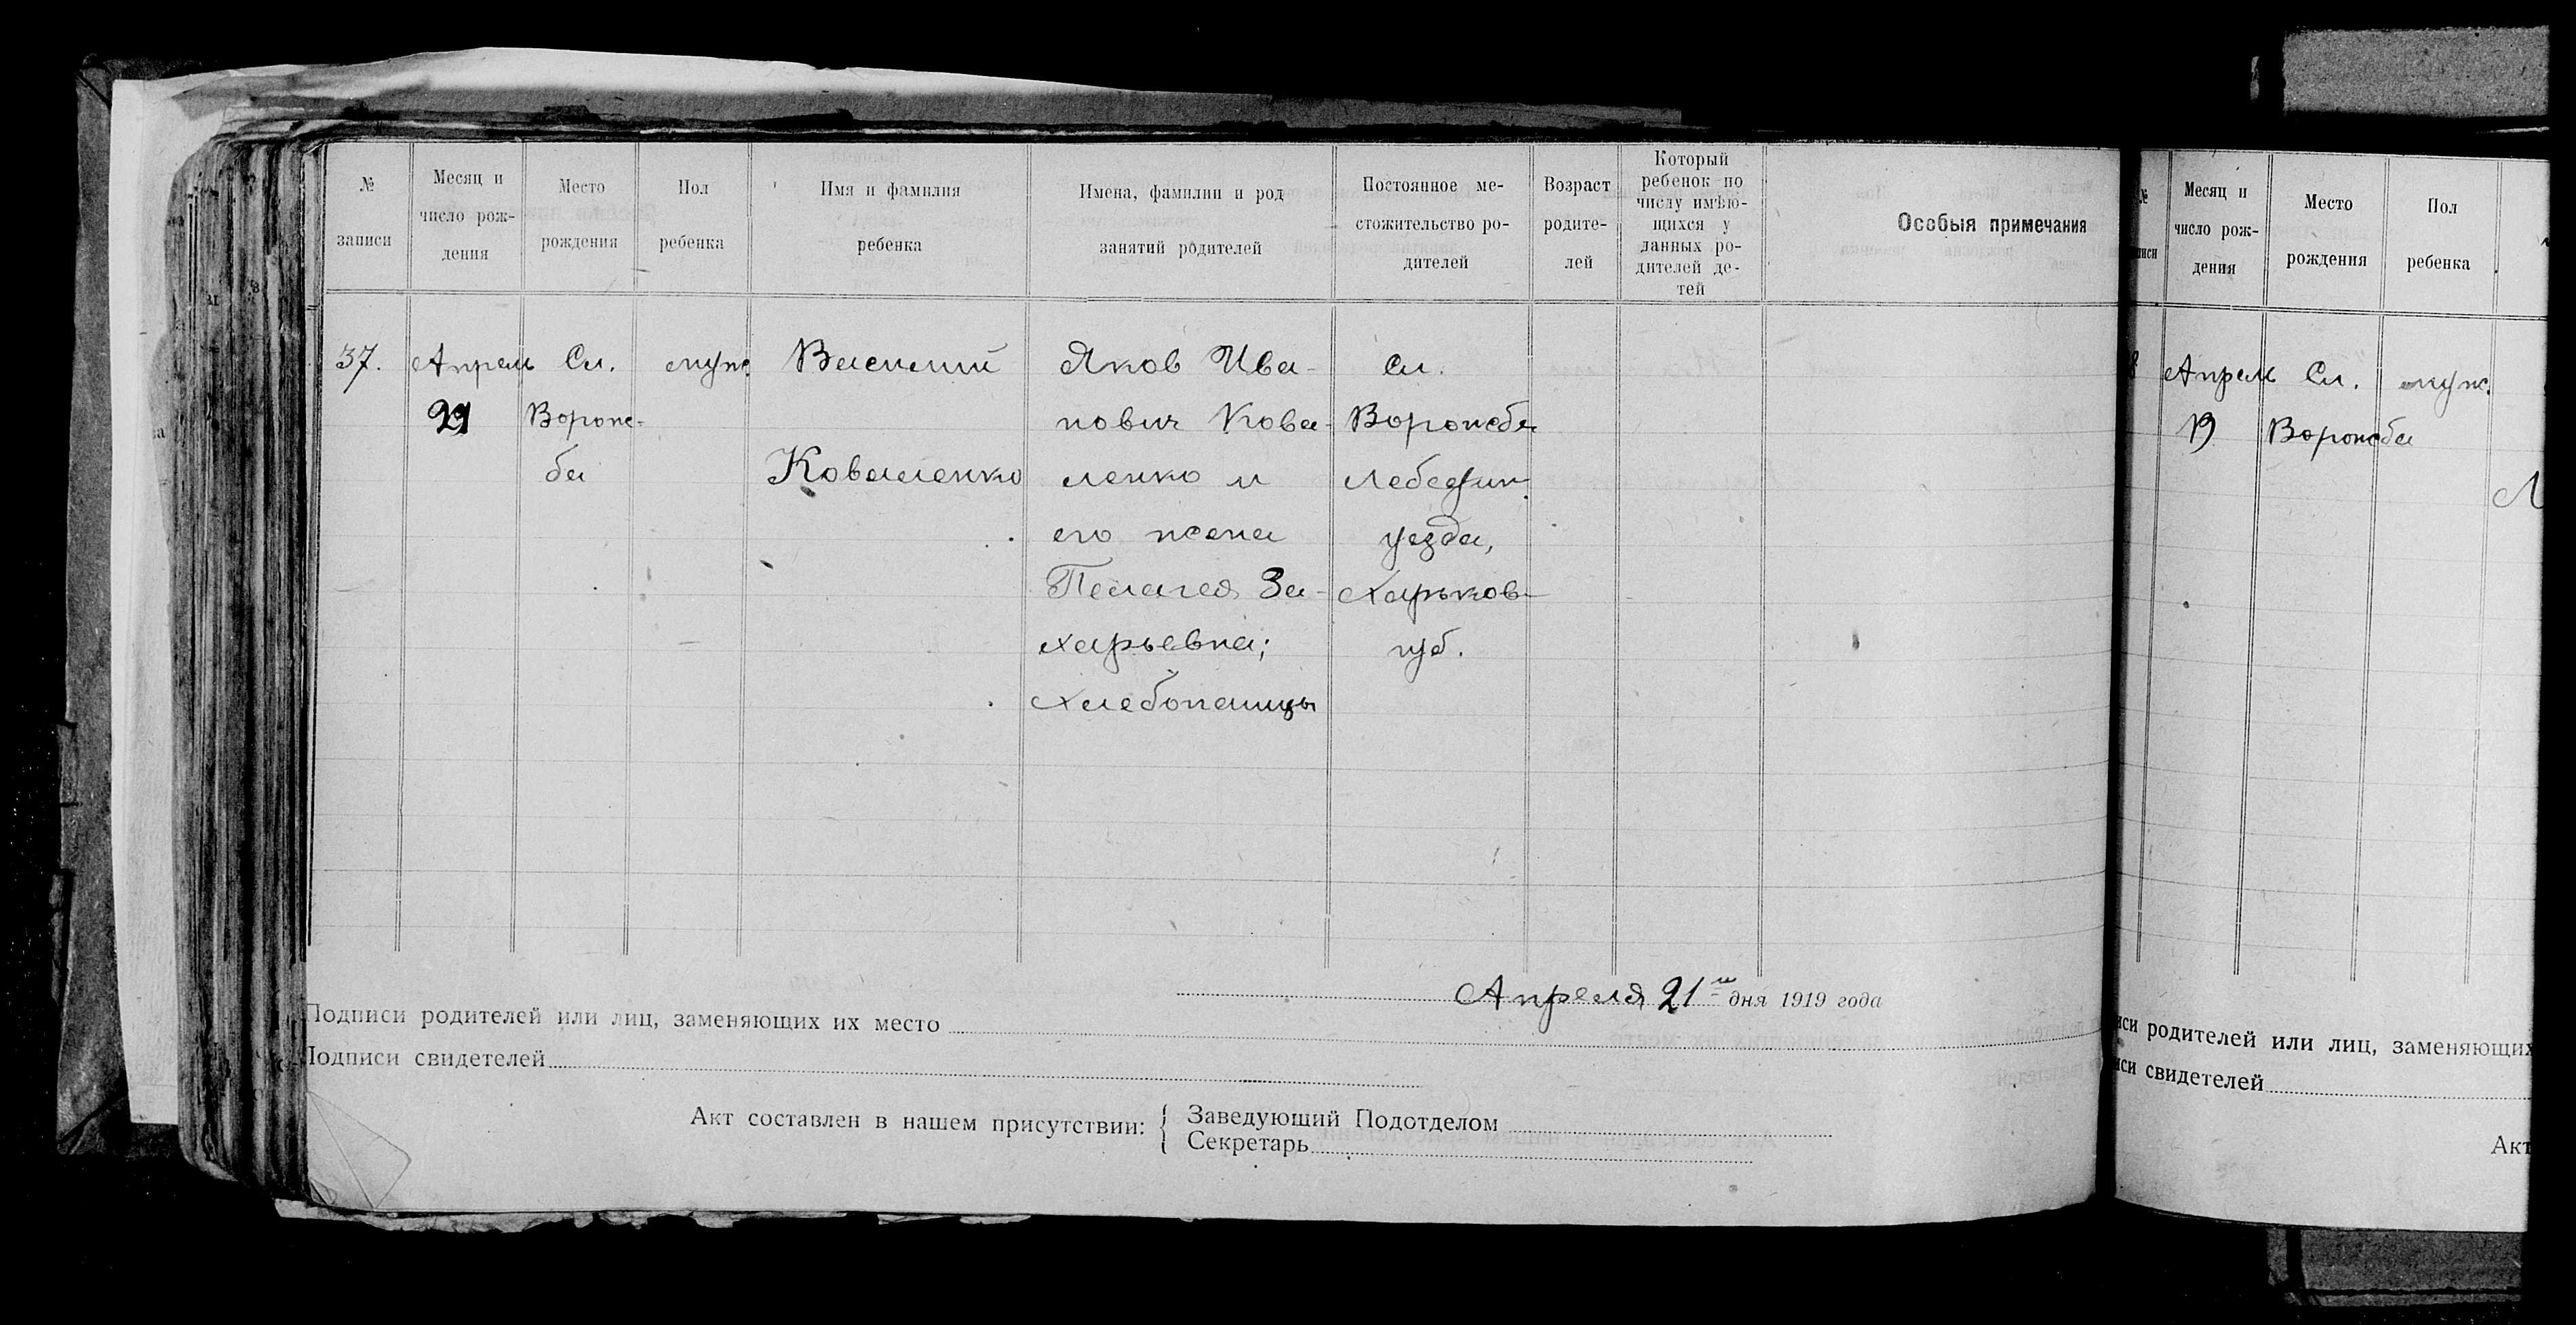 №
записи
Месяц и
число рож-
дения
Место
рождения
Пол
ребенка
Имя и фамилия
ребенка
Имена, фамилии и род
занятий родителей
Постоянное ме-
стожительство ро-
дителей
Возраст
родите-
лей
Который
ребенок по
числу имѣю-
щихся у
данных ро-
дителей де-
тей
Особыя примечания
37.
Апрель
21
Сл.
Ворож-
ба
муж.
Василий
Коваленко
Яков Ива-
нович Кова-
ленко и
его жена
Пелагея За-
харьевна;
Хлебопашцы
Сл.
Ворожба
Лебедин.
уезда,
Харьков-
губ.
Апреля 21 дня 1919 года
Подписи родителей или лиц, заменяющих их место
Подписи свидетелей
Акт составлен в нашем присутствии:
Заведующий Подотделом
Секретарь
№
писи
Месяц и
число рож-
дения
Место
рождения
Пол
ребенка
8
Апрель
19
Сл.
Ворожба
муж.
Л
иси родителей или лиц, заменяющих
иси свидетелей
Акт